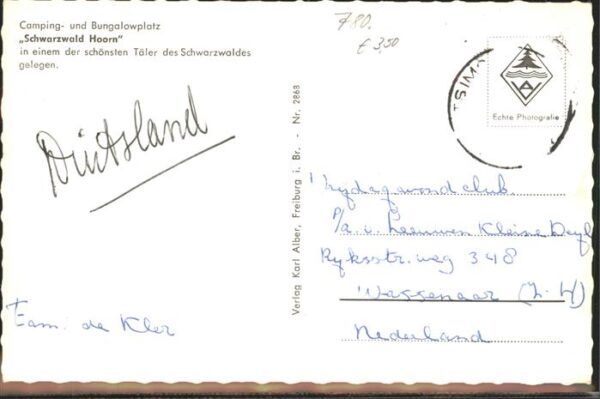 Camping- und Bungalowplatz
„Schwarzwald Hoorn"
in einem der schönsten Täler des Schwarzwaldes
gelegen.
780.
€ 3,50
Echte Photografie
Duitsland
Verlag Karl Alber, Freiburg i. Br. - Nr. 2868
Vrydagavondclub
P/a. v. Leeuwen Kleine Deyl
Ryksstr. weg 348
Wassenaar (Z-H)
Nederland
Fam. de Kler